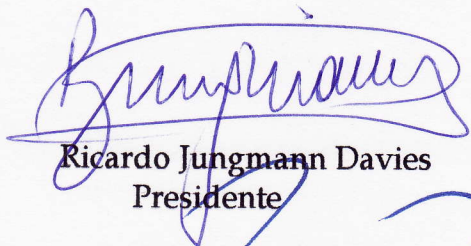 Ricardo Jungmann Davies
Presidente